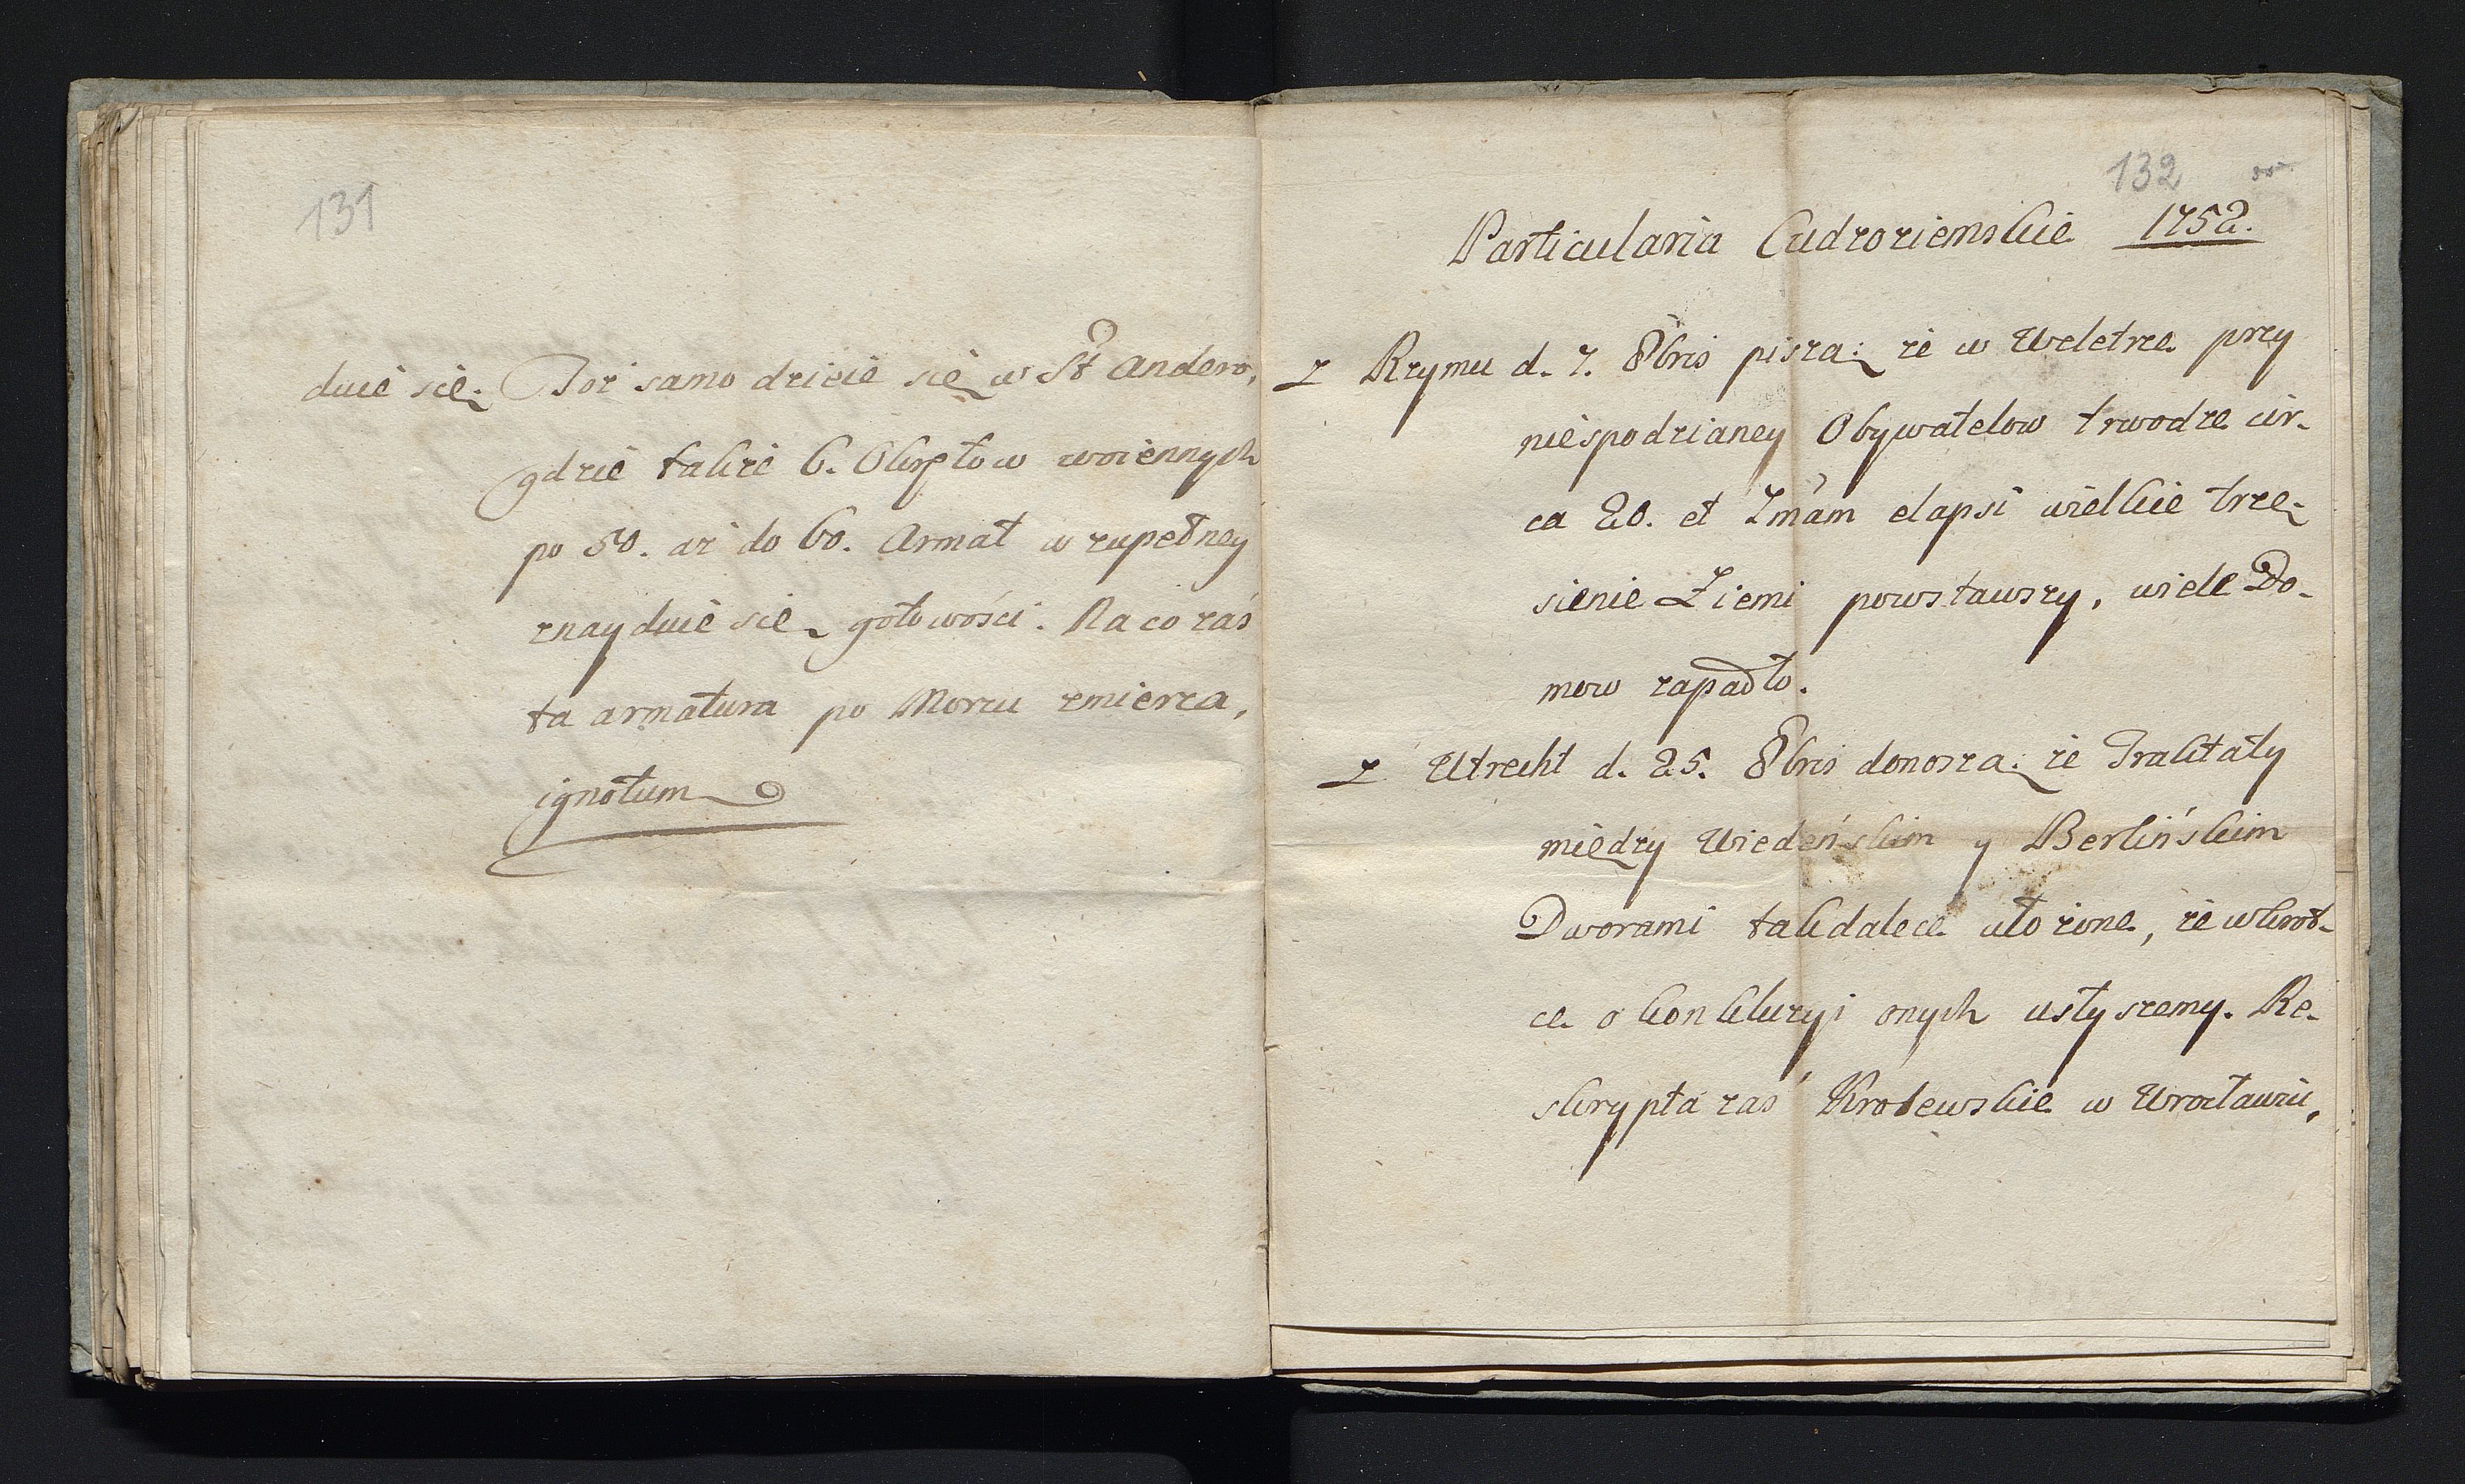 131
duie się. Toż samo dzieie się w St Andero,
gdzie także 6. Okrętow woiennych
po 50. aż do 60. Armat w zupełney
znayduie się gotowości. Na co zaś
ta armatura po Morzu zmierza,
ignotum
132
Particularia Cudzoziemskie 1752.
z Rzymu d. 7. 8bris piszą: że w Weletrze przy
niespodzianey Obywatelow trwodze cir-
ca 20. et Imam elapsi wielkie trzę-
sienie Ziemi powstawszy, wiele Do-
mow zapadło.
z Utrecht d. 25. 8bris donoszą: że Traktaty
między Wiedeńskim y Berlińskim
Dworami takdalece ułożone, że wkrot-
ce o konkluzyi onych usłyszemy. Re-
skrypta zaś Krolewskie w Wrocławiu,